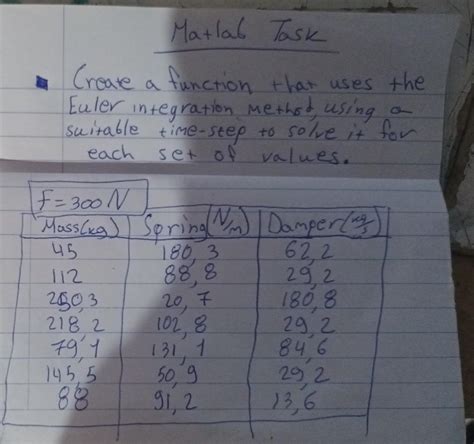 Matlab Task
Create a function that uses the
Euler integration method, using a
suitable time-step to solve it for
each set of values.
f=300N
Mass(kg) Spring(N/m) Damper(kg/s)
45 180,3 62,2
112 88,8 29,2
250,3 20,7 180,8
218,2 102,8 29,2
79,1 131,1 84,6
145,5 50,9 29,2
88 91,2 13,6